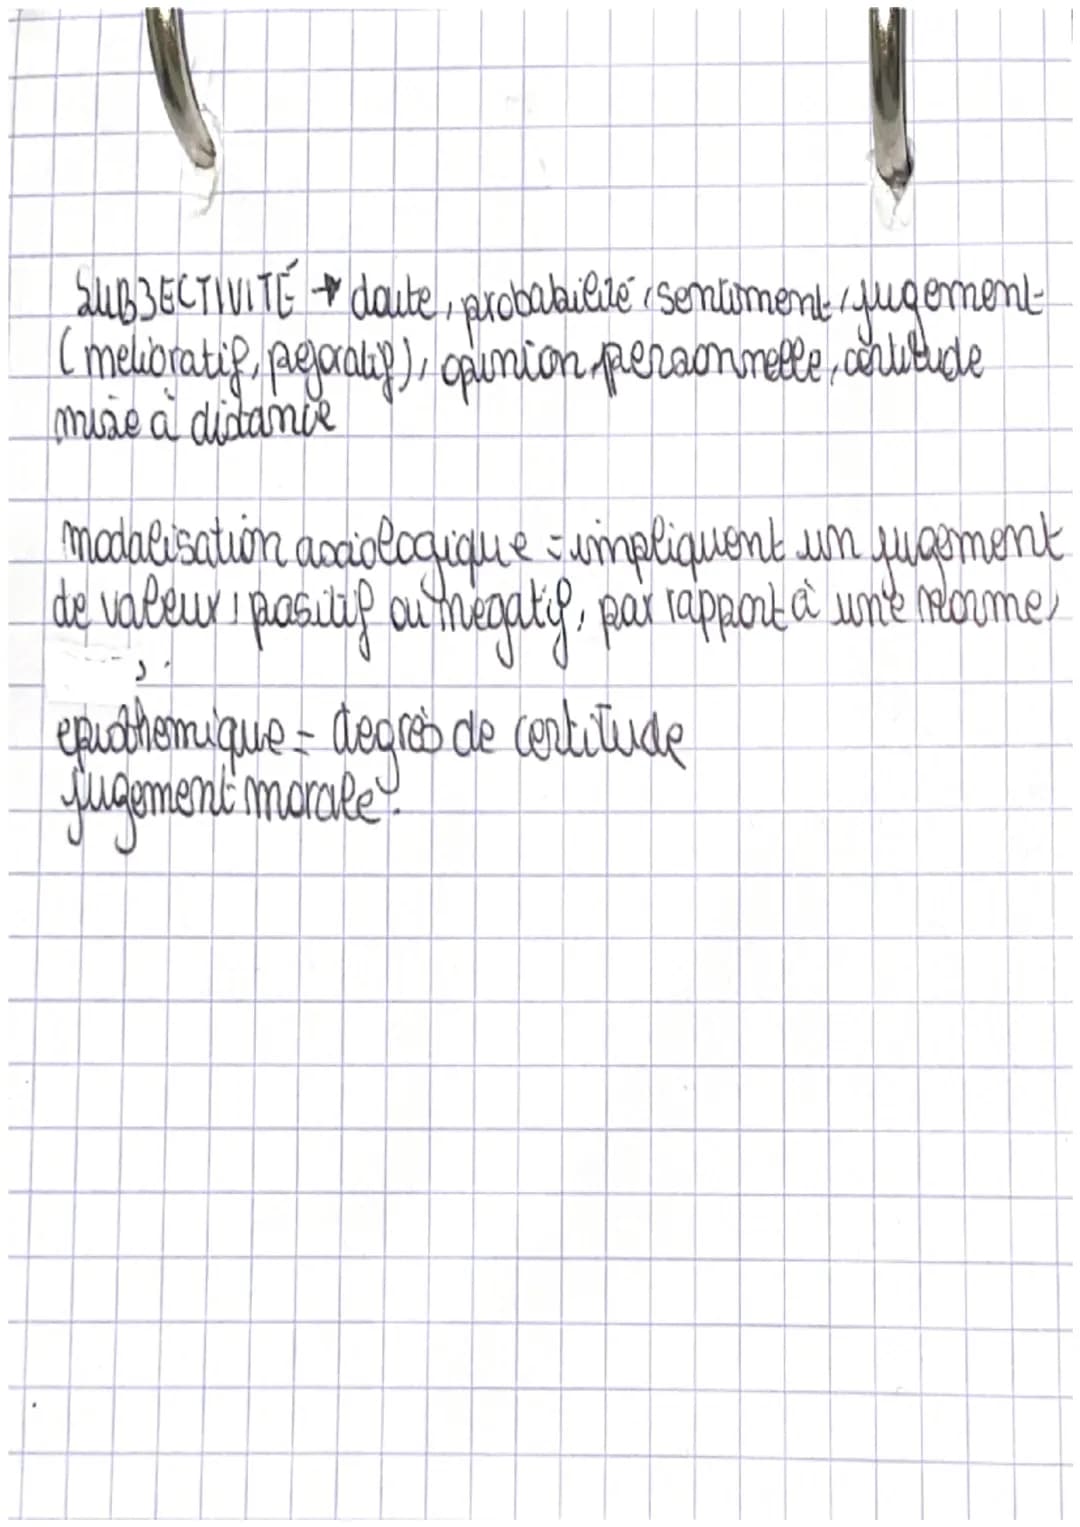 SUBJECTIVITÉ → doute, probabilité, sentiment, jugement
(melioratif, pejoratif), opinion personnelle, certitude
mise à distance
modalisation axiologique = impliquent un jugement
de valeur, positif ou négatif, par rapport à une norme,
episthemique = degrés de certitude
jugement morale.